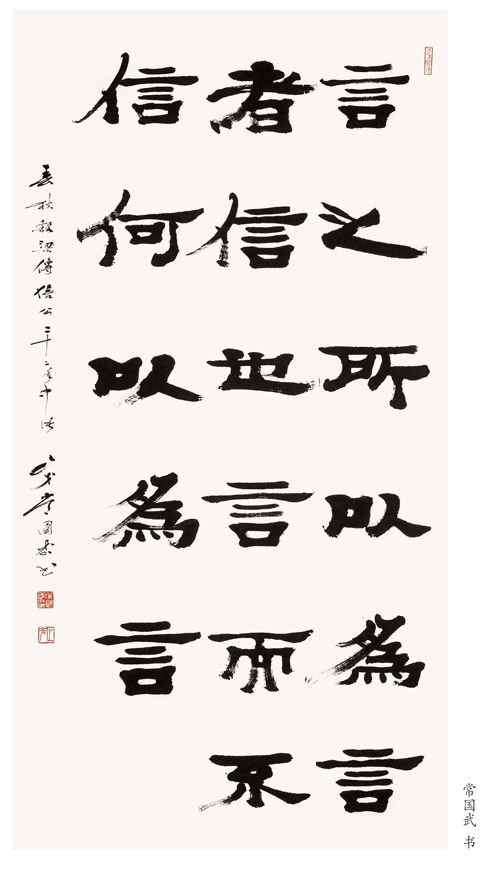 言之所以為言
者信也言而不
信何以為言
春秋穀梁傳僖公二十二年中語
常國武書
常国武 书